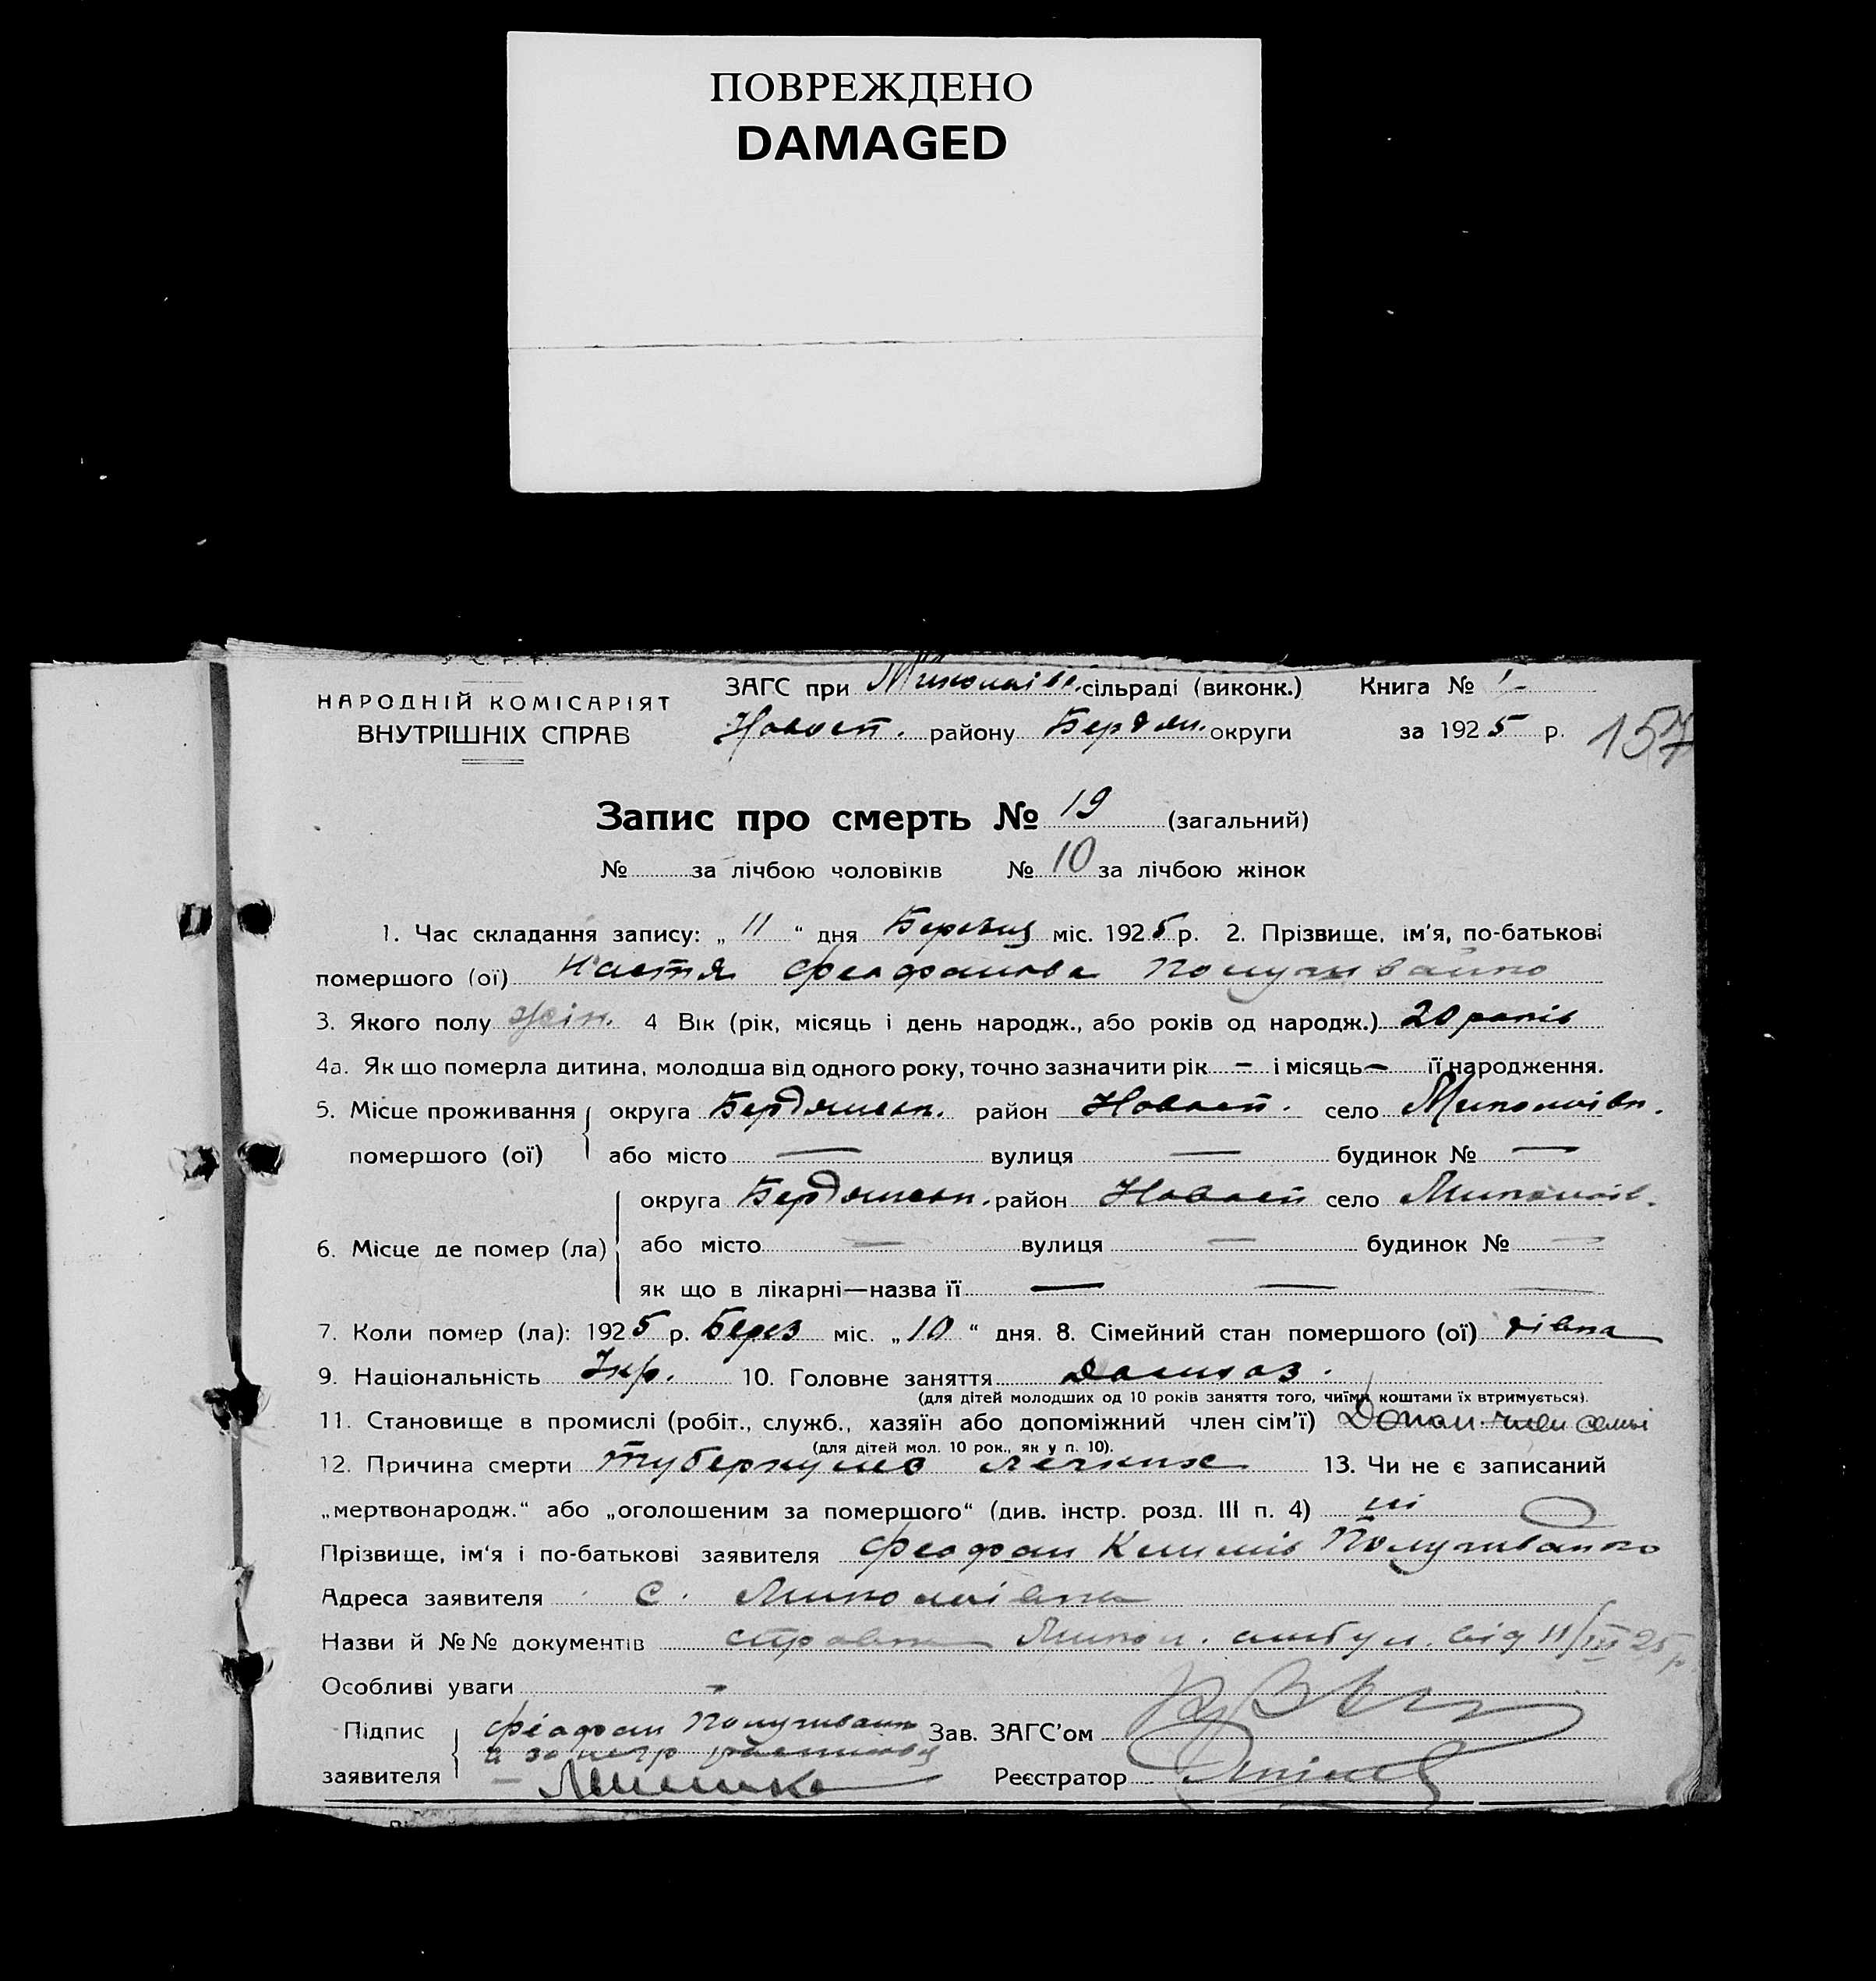 ПОВРЕЖДЕНО
DAMAGED
НАРОДНІЙ КОМІСАРІЯТ
ВНУТРІШНІХ СПРАВ
ЗАГС при Миколаїв. сільраді (виконк.) Книга № 1
Новосп. району Бердян. округи за 1925 р.
157
Запис про смерть № 19 (загальний)
№ за лічбою чоловіків № 10 за лічбою жінок
1. Час складання запису: „11“ дня Березня міс. 1925 р. 2. Прізвище, ім'я, по-батькові
помершого (ої) Настя Феофанова Полуживайко
3. Якого полу жін. 4 Вік (рік, місяць і день народж., або років од народж.) 20 років
4а. Як що померла дитина, молодша від одного року, точно зазначити рік – і місяць – її народження.
5. Місце проживання округа Бердянськ. район Новосп. село Миколаївк.
помершого (ої) або місто — вулиця — будинок № —
округа Бердянськ. район Новосп село Миколаїв.
6. Місце де помер (ла) або місто — вулиця — будинок № —
як що в лікарні—назва її — — —
7. Коли помер (ла): 1925 р. Берез міс. „10“ дня. 8. Сімейний стан помершого (ої) дівка
9. Національність Укр. 10. Головне заняття
(для дітей молодших од 10 років заняття того, чиїми коштами їх втримується).
11. Становище в промислі (робіт., служб., хазяїн або допоміжний член сім'ї) Допом. член семьі
(для дітей мол. 10 рок., як у п. 10).
12. Причина смерти туберкульо легких 13. Чи не є записаний
„мертвонародж.“ або „оголошеним за помершого“ (див. інстр. розд. III п. 4) ні
Прізвище, ім'я і по-батькові заявителя Феофан Климів Полуживайко
Адреса заявителя с. Миколаївка
Назви й №№ документів справка Микол. амбул. від 11/III 25 р
Особливі уваги –
Підпис Феофан Полуживайк Зав. ЗАГС'ом
заявителя Реєстратор